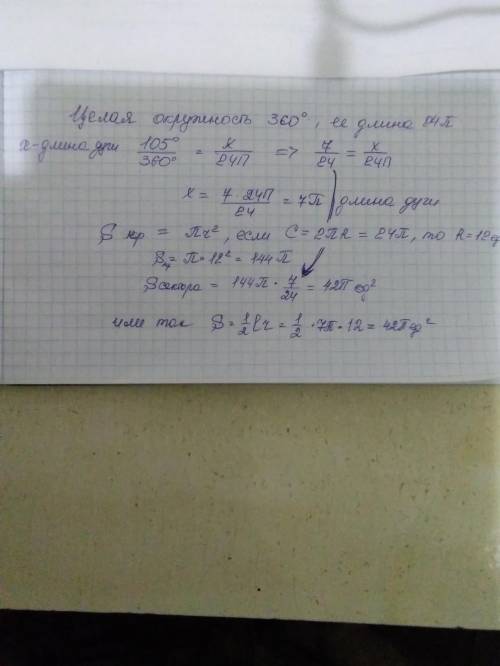 Целая окружность 360°, ее длина 24π
x-длина дуги 105°/360° = x/24π => 7/24 = x/24π
x = 7·24π/24 = 7π | длина дуги
S кр = πr², если C = 2πR = 24π, то R = 12
S = π·12² = 144π
Sсектора = 144π · 7/24 = 42π ед²
или так S = 1/2 lr = 1/2 · 7π · 12 = 42π ед²